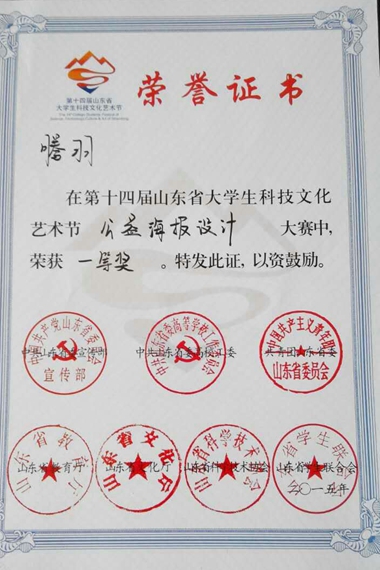 第十四届山东省
大学生科技文化艺术节
荣誉证书
在第十四届山东省大学生科技文化
艺术节 公益海报设计 大赛中,
荣获 一等奖 。特发此证,以资鼓励。
中国共产党山东省委员会
宣传部
中共山东省委高等学校工作委员会
中国共产主义青年团
山东省委员会
中共山东省委宣传部 中共山东省委高校工委 共青团山东省委
山东省教育厅
山东省文化厅
山东省科学技术协会
山东省学生联合会
山东省教育厅 山东省文化厅 山东省科学技术协会 山东省学生联合会
二〇一五年